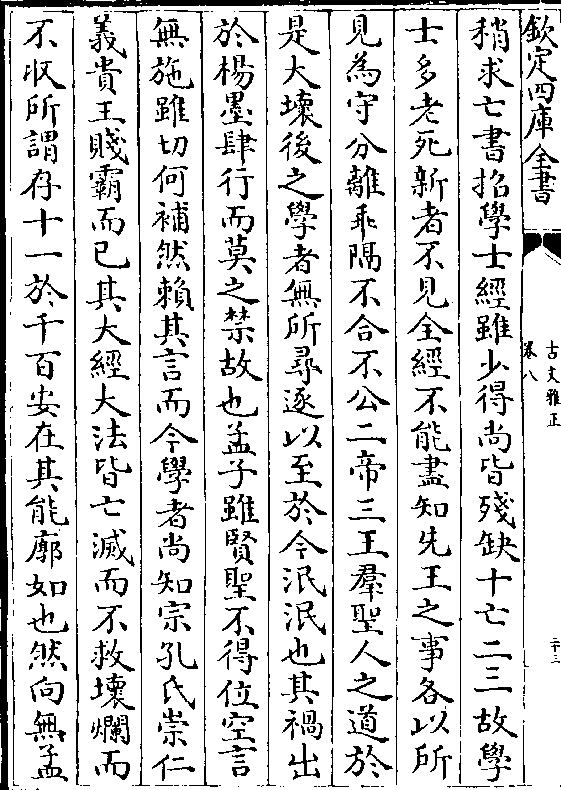 欽定四庫全書
古文雅正
卷八
二十三
稍求亡書招學士經雖少得尚皆殘缺十亡二三故學
士多老死新者不見全經不能盡知先王之事各以所
見為守分離乖隔不合不公二帝三王羣聖人之道於
是大壞後之學者無所尋逐以至於今泯泯也其禍出
於楊墨肆行而莫之禁故也孟子雖賢聖不得位空言
無施雖切何補然賴其言而今學者尚知宗孔氏崇仁
義貴王賤霸而已其大經大法皆亡滅而不救壞爛而
不收所謂存十一於千百安在其能廓如也然向無孟